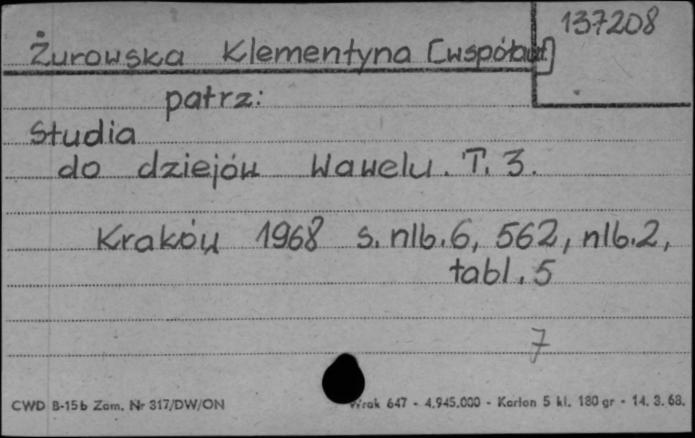 137208
Żurowska Klementyna [współaut.]
patrz:
Studia
do dziejów Wawelu. T. 3.
Kraków 1968 s. nlb. 6, 562, nlb. 2,
tabl. 5
7
CWD B-15b Zam. Nr 317/DW/ON
647 - 4.945.000 - Karton 5 kl. 180 gr - 14. 3. 68.